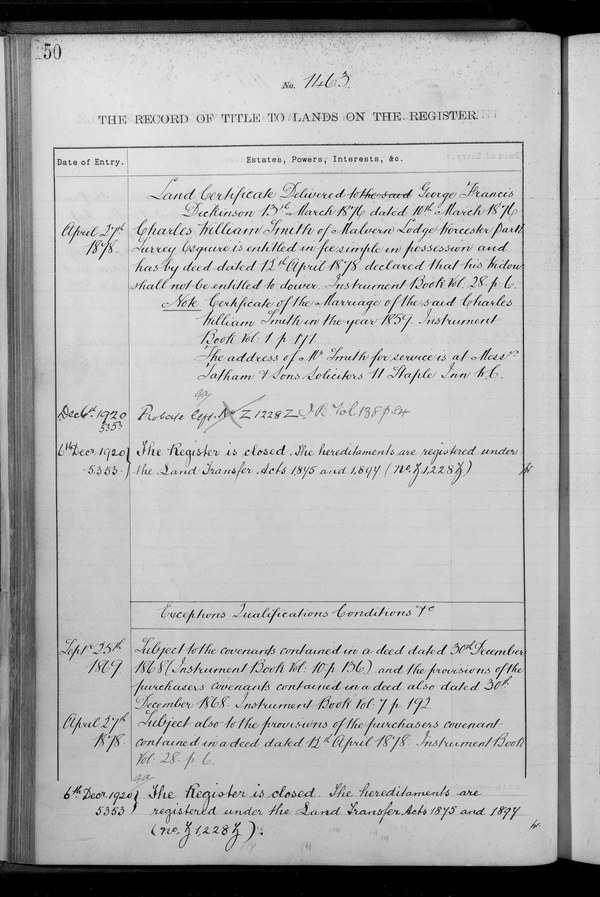 50
No. 1463.
THE RECORD OF TITLE TO LANDS ON THE REGISTER.
Date of Entry.
Estates, Powers, Interests, &c.
Land Certificate Delivered to the said George Francis
Dickinson 13th March 1876 dated 10th March 1876
April 27th
1878.
Charles William Smith of Malvern Lodge Worcester Park
Surrey Esquire is entitled in fee simple in possession and
has by deed dated 12th April 1878 declared that his Widow
shall not be entitled to dower. Instrument Book Vol. 28. p. 6.
Note. Certificate of the Marriage of the said Charles
William Smith in the year 1859. Instrument
Book Vol. 1. p. 171.
The address of Mr Smith for service is at Messrs
Tatham & Sons Solicitors 11 Staple Inn W.C.
Dec 6th 1920
5353
Probate Z 1228 Z I B Vol 138 p 84
6th Decr. 1920
5353
The Register is closed. The hereditaments are registered under
the Land Transfer Acts 1875 and 1897 (no. Z 1,228 Z)
Exceptions Qualifications Conditions &c
Septr 25th
1869
Subject to the covenants contained in a deed dated 30th December
1868 (Instrument Book Vol: 10 p. 136) and the provisions of the
purchasers covenants contained in a deed also dated 30th
December 1868. Instrument Book Vol: 7 p. 192.
April 27th
1878.
Subject also to the provisions of the purchasers covenant
contained in a deed dated 12th April 1878. Instrument Book
Vol. 28. p. 6.
6th Decr. 1920
5353
The Register is closed. The hereditaments are
registered under the Land Transfer Acts 1875 and 1897
(no. Z 1,228 Z).